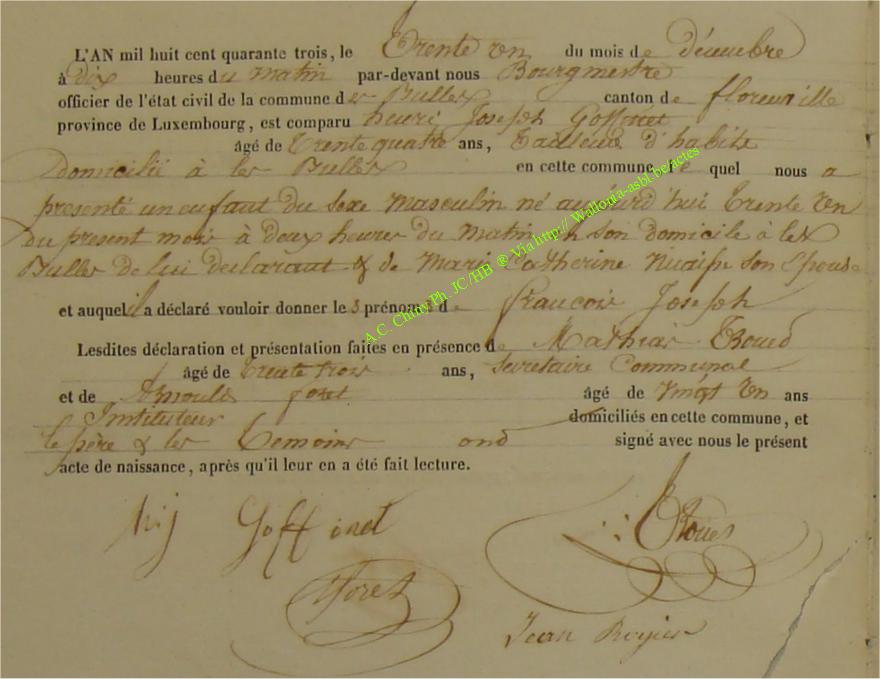 L'AN mil huit cent quarante trois, le Trente un du mois de décembre
à dix heures du matin par-devant nous Bourgmestre
officier de l'état civil de la commune des Bulles canton de florenville
province de Luxembourg, est comparu henri Joseph Goffinet
âgé de Trente quatre ans, Tailleur d'habits
Domicilié à les Bulles en cette commune le quel nous a
présenté un enfant du sexe masculin né aujourd'hui Trente un
du present mois à deux heures du matin en son domicile à les
Bulles de lui declarant & de Marie Catherine son Epouse
et auquel il a déclaré vouloir donner les prénoms de francois Joseph
Lesdites déclaration et présentation faites en présence de Mathias
âgé de Trente trois ans, secretaire Communal
et de foret âgé de vingt un ans
Instituteur domiciliés en cette commune, et
le père & les Temoins ont signé avec nous le présent
acte de naissance, après qu'il leur en a été fait lecture.
hrij Goffinet
foret
Jean
A.C. Chiny Ph. JC/HB @ Via http:// Wallonia-asbl.be/actes